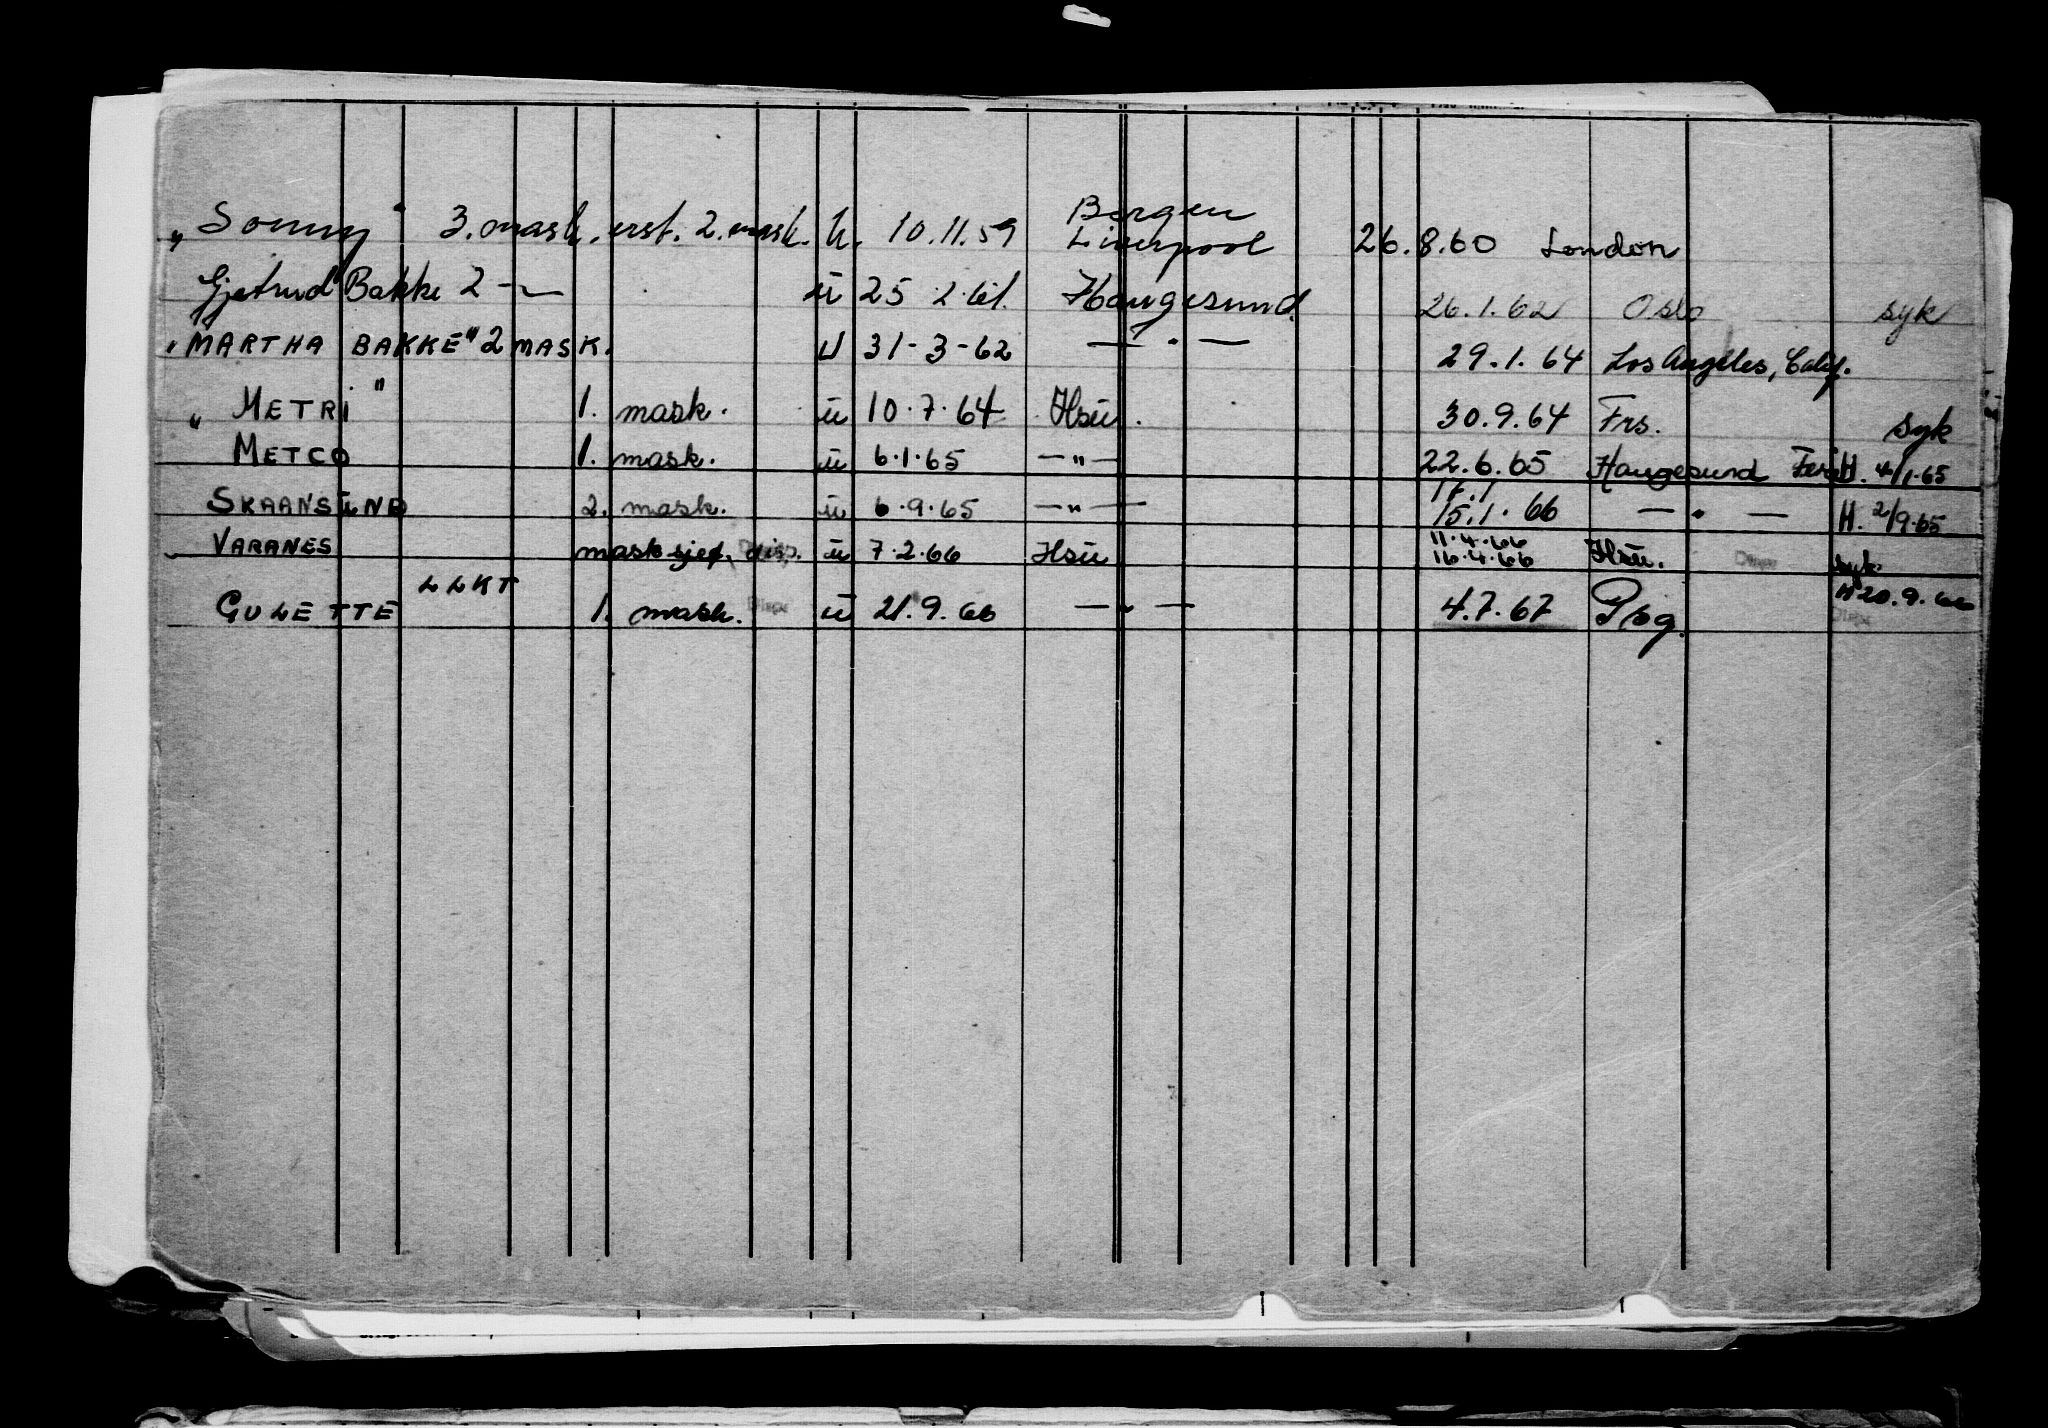 „Sonny" 3. mask. erst. 2. mask. U. 10.11.59 Bergen Liverpool 26.8.60 London
Gjertrud Bakke 2 -„- ü 25 2.61. Haugesund. 26.1.62 Oslo syk
"MARTHA BAKKE" 2 MASK. U 31-3-62 — " — 29.1.64 Los Angeles, Calif.
„METRI" 1. mask. ü 10.7.64 Hsü. 30.9.64 Frs. syk
METCO 1. mask. ü 6.1.65 — " — 22.6.65 Haugesund H. 4/1.65
SKAANSUND 2. mask. ü 6.9.65 — " — 15.1.66 — " — H. 2/9.65
VARANES mask sjef, dis. ü 7.2.66 Hsü 11.4.66 16.4.66 Hsü. Disp syk.
GULETTE LLKT 1. mask. Disp ü 21.9.66 — " — 4.7.67 Pbg. H 20.9.66 Disp